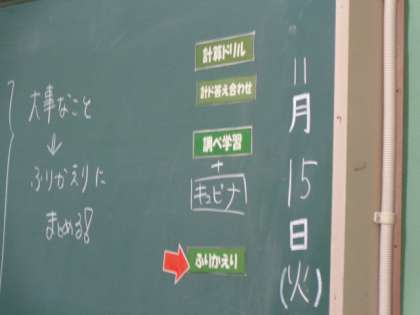 11月15日(火)
計算ドリル
計ド答え合わせ
調べ学習
+
キュビナ
ふりかえり
大事なこと
↓
ふりかえりに
まとめる!